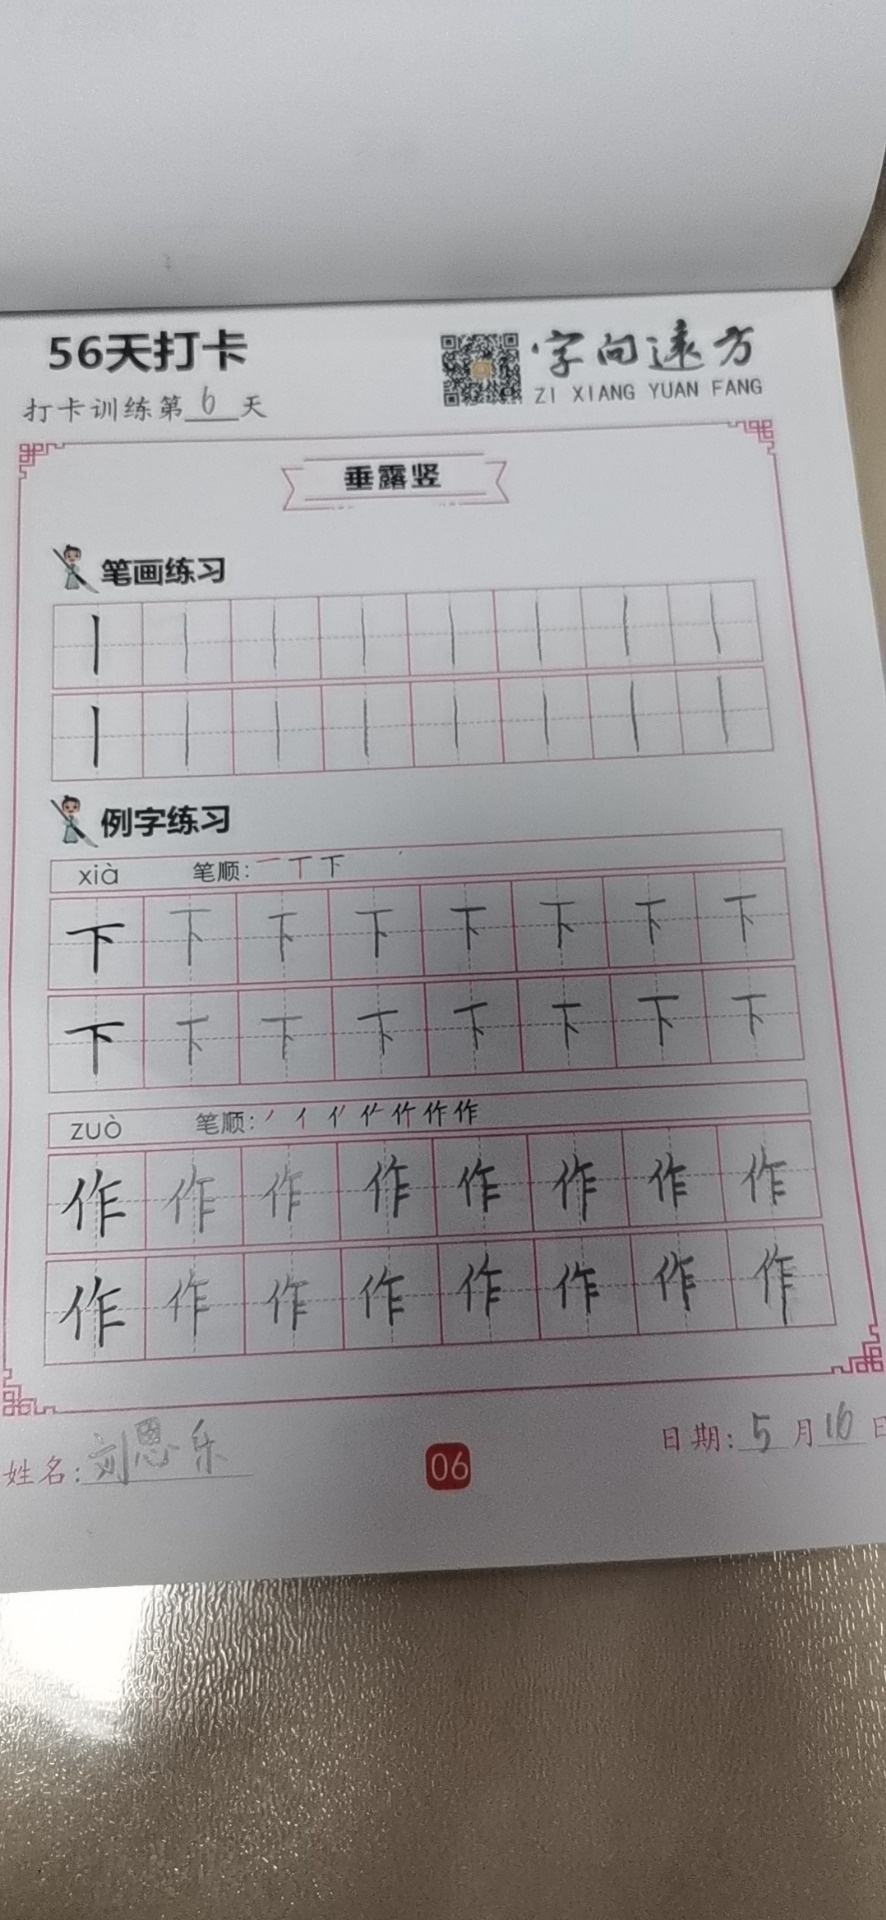 56天打卡
字向远方
ZI XIANG YUAN FANG
打卡训练第6天
垂露竖
笔画练习
丨 丨 丨 丨 丨 丨 丨 丨
丨 丨 丨 丨 丨 丨 丨 丨
例字练习
xià 笔顺: 一 丅 下
下 下 下 下 下 下 下 下
下 下 下 下 下 下 下 下
zuò 笔顺: 作 作
作 作 作 作 作 作 作 作
作 作 作 作 作 作 作 作
姓名: 刘恩乐
06
日期: 5月16日